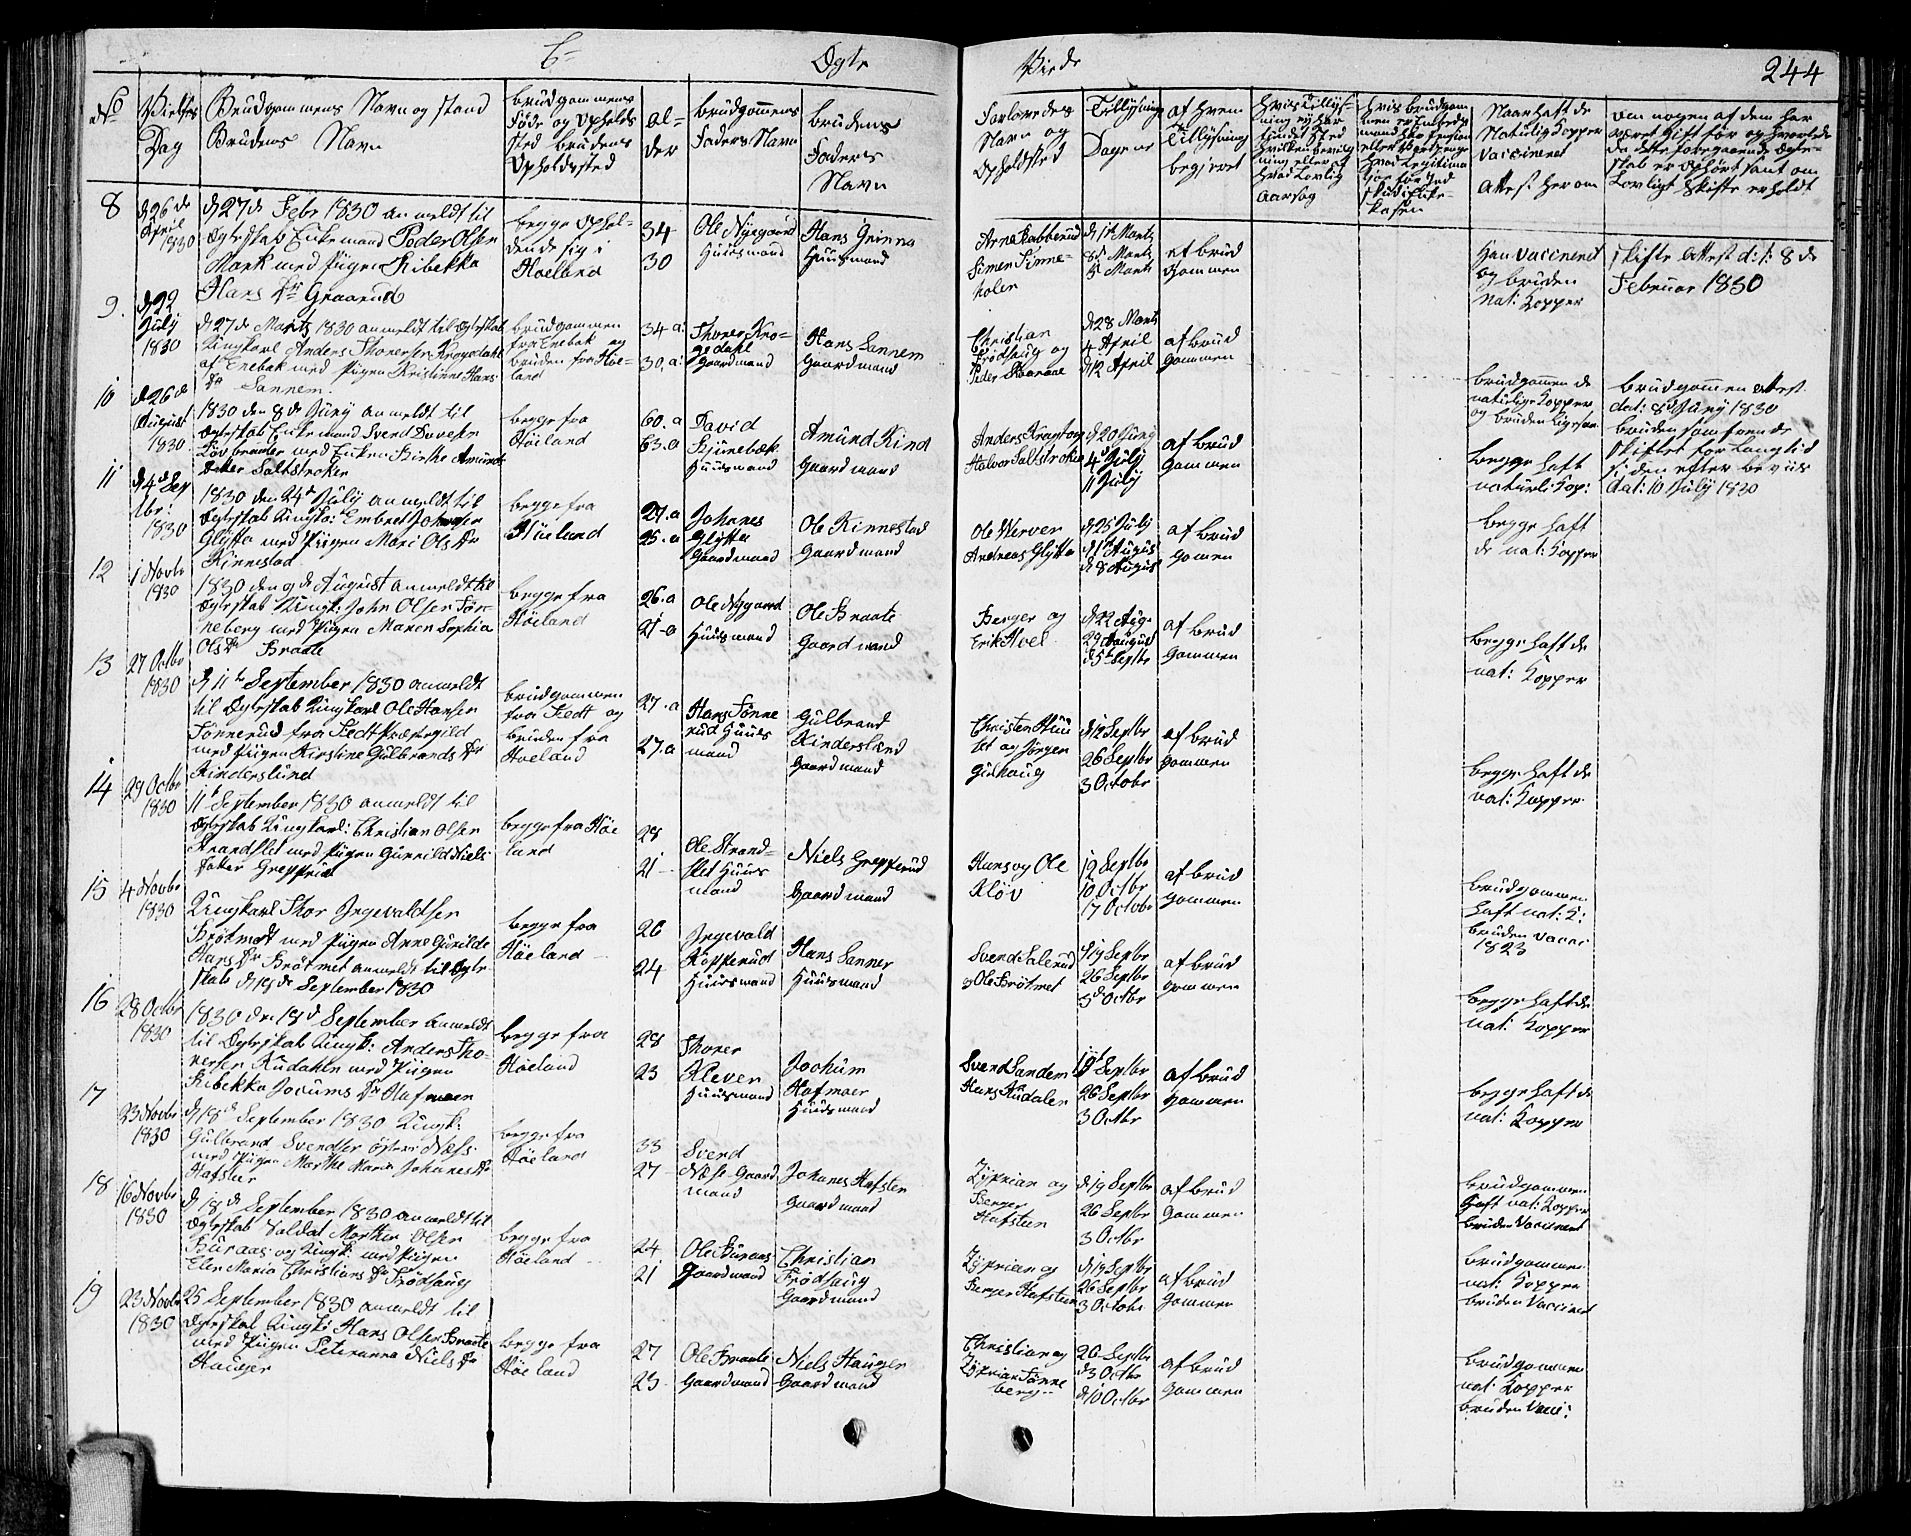 Egte Viede 244
No
Vielses Dag
Brudgommens Navn og stand
Brudens Navn
brudgommens
Føde og Opholds
sted brudens
Opholdssted
al-
der
brudgommens
Faders Navn
brudens
Faders
Navn
Forlovedes
Navn og
Opholdsted
Tillysnings
Dagene
af hvem
Tillysning
begjæret
Naar haft de
Naturlig Kopper
Vaccineret
Attest herom
om nogen af dem har
været gift før og hvorlede
da dette foregaaende Ægte-
skab er ophørt samt om
Lovligt Skifte er holdt
8
d 26de
April
1830
d 27de Febr 1830 anmeldt til
Ægteskab Enkemand Peder Olsen
Mork med Pigen Ribekka
Hans Dr Graarud
begge Ophol-
dende sig i
Høeland
34
30
Ole Nygaard
Huusmand
Hans Grinna
Huusmand
Simen Sinne-
holen
d 1te Marts
8d Marts
af brud
gommen
Han vaccineret
og bruden
nat: Kopper
skifte Attest d: t: 8de
Februar 1830
9.
d 22
July
1830
d 27de Marts 1830 anmeldt til Ægteskab
Ungkarl Anders Thoresen Krogsdahl
af Enebak med Pigen Kristinne Hans
Dr Sannem
brudgommen
fra Enebak og
bruden fra Høe-
land
34 a:
30. a:
Thorer Kro-
gsdahl
Gaardmand
Hans Sannem
Gaardmand
Christian
Frødhaug og
Peder
d 28 Marts
4 April
d 12 April
af brud
gommen
brudgommen de
naturlige Kopper
og bruden ligesaa
10
d 26de
August
1830
1830 den 8de Juny anmeldt til
Ægteskab Enkemand Svend Davesen
med Enken Birthe Amunds
datter Saltstroken
begge fra
Høeland
60. a
63. a
David
Huusmand
Amund Kind
Gaardmand
Anders
Halvor Saltstroken
d 20 Juny
4d July
11 July
af brud
gommen
begge haft
naturli: Kop:
brudgommen Attest
dat: 8d Juny 1830
bruden som Enke
skiftet for lang tid
siden efter beviis
dat: 10 July 1830
11
d 4d Sep
tbr:
1830
1830 den 24d July anmeldt til
Ægteskab Ungka: Embret Johnsen
Glytta med Pigen Mari Ols Dr
Kinnestad
begge fra
Høeland
27. a
25. a
Johanes
Glytte
Gaardmand
Ole Kinnestad
Gaardmand
Ole Werver
Andreas Glytta
d 25 July
d 1te Augus
d 8 Augus
af brud
gommen
begge haft
de nat: Kopper
12
1 Novbr
1830
1830 den 9de August anmeldt til
Ægteskab Ungk: John Olsen Søn-
neberg med Pigen Maren Sophia
Ols Dr Braate
begge fra
Høeland
26. a
21-a
Ole Nygaard
Huusmand
Ole Braate
Gaardmand
Berger og
Erik Hoel
d 22 Aug
29 August
d 5te Septbr
af brud
gommen
begge haft de
nat: Kopper
13
27 Octbr
1830
d 11te September 1830 anmeldt
til Ægteskab Ungkarl Ole Hansen
Sønnerud fra Fedt Præstegild
med Pigen Kirstine Gulbrands Dr
Kinderslund
brudgommen
fra Fedt og
bruden fra
Høeland
27. a
27. a
Hans Sønne
rud Huus
mand
Gulbrand
Kinderslund
Gaardmand
og Jørgen
d 12 Septbr
26 Septbr
3 October
af brud
gommen
begge haft de
nat: Kopper
14
29 Octbr
1830
11te September 1830 anmeldt til
Ægteskab Ungkarl: Christian Olsen
Strandslet med Pigen Gunnild Niels
datter Grepperud
begge fra Høe
land
28
21-
Ole Strand-
slet Huus
mand
Niels Grepperud
Gaardmand
Hans og Ole
Kløv
19 Septbr
10 Octbr
17 Octobr
af brud
gommen
brudgommen
haft nat: K:
bruden vacci
1823
15
4 Novbr
1830
Ungkarl Thor Ingevaldsen
Brøtmet med Pigen Anne Gunilde
Hans Dr Brøtmet anmeldt til Ægte-
skab d 18de September 1830
begge fra
Høeland
26
24
Ingevald
Kopperud
Huusmand
Hans Sanner
Huusmand
Svend Salerud
og Ole Brøtmet
d 19 Septbr
26 Septbr
3d Octbr
af brud
gommen
begge haft de
nat: Kopper
16
28 Octbr
1830
1830 den 18d September anmeldt
til Ægteskab Ungk: Anders Tho-
resen Kudahlen med Pigen
Ribekka Jocums Dr Hafmoen
begge fra
Høeland
28
23
Thorer
Klever
Huusmand
Jochum
Hafmoer
Huusmand
Svend Sandem
Hans Kudalen
19d Septbr
26 Septbr
3 Octbr
af brud
gommen
begge haft de
nat: Kopper
17
23 Novbr
1830
d 18d September 1830 Ungk:
Gulbrand Svendsen Østern Næss
med Pigen Marthe Maria Johanes Dr
Hafsten
begge fra
Høeland
33
27
Svend
Næss Gaard
mand
Johanes Hafsten
Gaardmand
Zyprian og
Berger
Hafsteen
d 19 Septbr
26 Septbr
3 Octbr
af brud
gommen
brudgommen
haft nat: Kopper
bruden Vaccineret
18
16 Novbr
1830
d 18de September 1830 anmeldt til
Ægteskab Soldat Morthen Olsen
Buraas og Ungk: med Pigen
Elen Maria Christians Dr Frødhaug
begge fra
Høeland
24
21
Ole Buraas
Gaardmand
Christian
Frødhaug
Gaardmand
Zyprian og
Berger Hafsteen
d 19 Septbr
26 Septbr
3 Octobr
af brud
gommen
brudgommen
nat: Kopper
bruden Vaccineret
19
23 Novbr
1830
25 September 1830 anmeldt til
Ægteskab Ungk: Hans Olsen Braate
med Pigen Peteranna Niels Dr
Hauger
begge fra
Høeland
27
23
Ole Braate
Gaardmand
Niels Hauger
Gaardmand
Christian og
Zyprian Sønne
berg
26 Septbr
d 3 Octbr
d 10 Octbr
af brud
gommen
brudgommen
nat: Kopper
bruden Vacci: